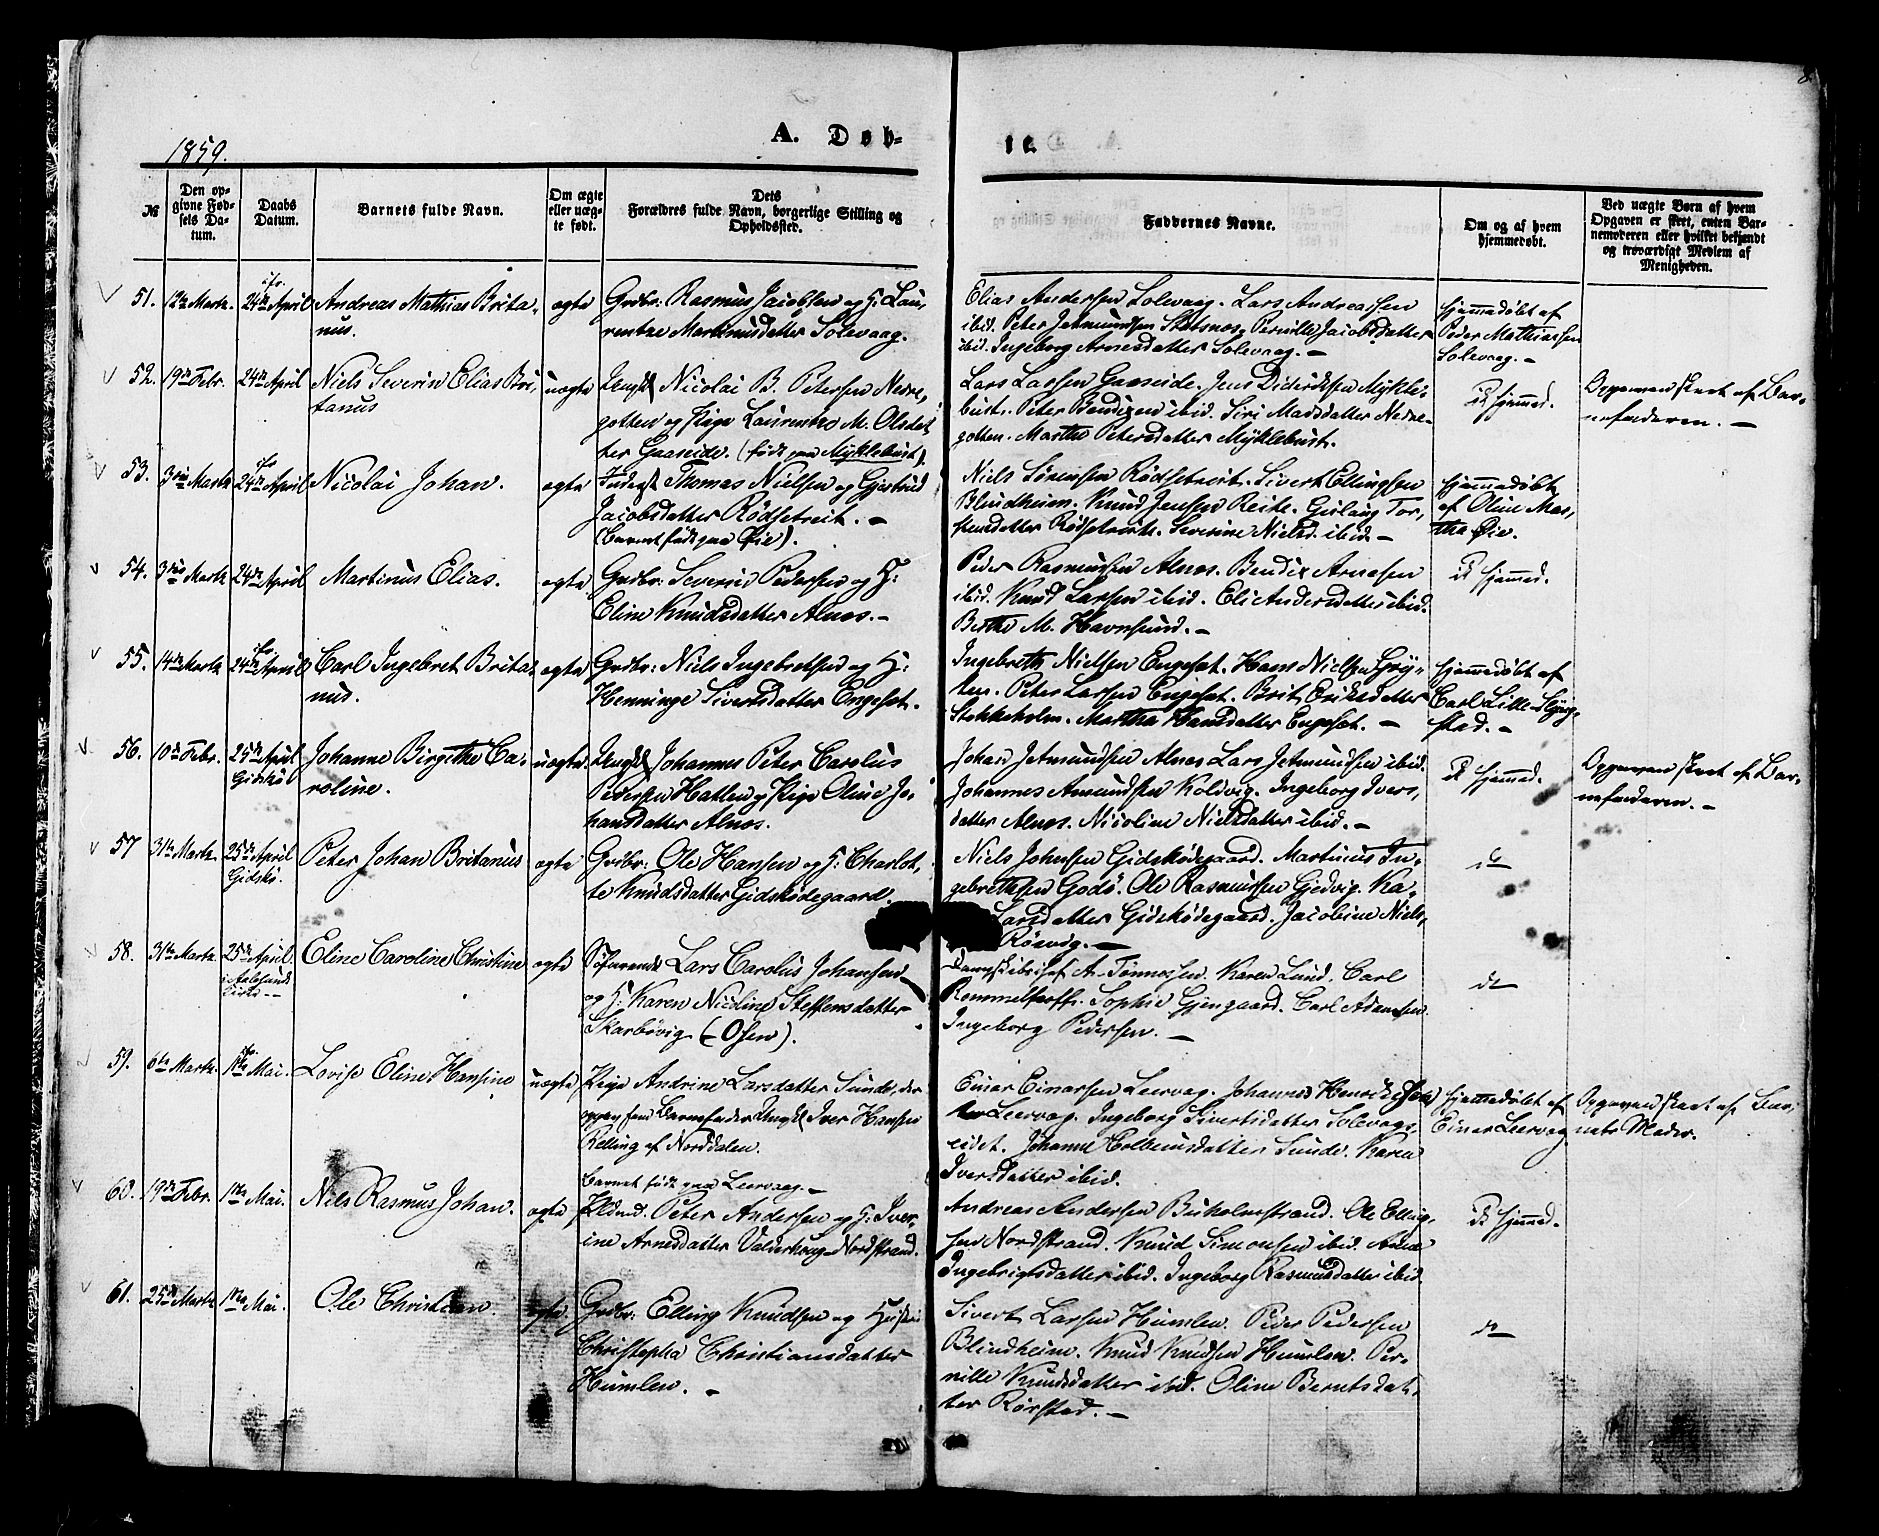 8.
1859.
A. Døb-
te.
№
Den op-
givne Fød-
sels Da-
tum.
Daabs
Datum.
Barnets fulde Navn.
Om ægte
eller uæg-
te født.
Dets
Forældres fulde Navn, borgerlige Stilling og
Opholdssted.
Faddernes Navne.
Om og af hvem
hjemmedøbt.
Ved uægte Børn af hvem
Opgaven er skeet, enten Bar-
nemoderen eller hvilket bekjendt
og troværdigt Medlem af
Menigheden.
51. 12te Marts. ifr. 24de April Andreas Mathias Brita-
nus.
ægte
Grdbr: Rasmus Jacobsen og H: Lau-
rentze Martinusdatter Solevaag.
Elias Andersen Solevaag. Lars Andreassen
ibid. Peter Jetmundsen Slotsnæs. Pernille Jacobsdatter
ibid. Ingeborg Arnesdatter Solevaag. —
hjemmedøbt af
Peder Mathiassen
Solevaag. —
52. 19de Febr. 24de April Niels Severin Elias Bri-
tanus
uægte
Ungk Nicolai B. Petersen Nedre-
gotten og Pige Laurentze M. Olsdat-
ter Gaaseide. (født paa Myklebust).
Lars Larsen Gaaseide. Jens Didriksen Mykle-
bust. Peter Bendixen ibid. Siri Madsdatter Nedre-
gotten. Marthe Petersdatter Myklebust.
ei hjemmed.
Opgaven skeet af Bar-
nefaderen. —
53. 3die Marts ifr 24de April Nicolai Johan.
ægte
Inderst Thomas Nielsen og Gjertrud
Jacobsdatter Rødsetreit. —
(Barnet født paa Øie).
Niels Sørensen Rødsetreit. Sivert Ellingsen
Blindheim. Knud Jensen Reite. Gislaug Tor-
stensdatter Rødsetreit. Severine Nielsd. ibid. —
hjemmedøbt
af Oline Mar-
tha Øie.
54. 3die Marts 24de April Martinus Elias.
ægte
Grdbr: Severin Pedersen og H:
Eline Knudsdatter Alnæs. —
Peder Rasmussen Alnæs. Bendix Arnesen
ibid. Knud Larsen ibid. Eli Andersdatter ibid.
Berthe M. Havnsund. —
ei hjemmed.
55. 14de Marts ifr. 24de April Carl Ingebret Brita-
nus.
ægte
Grdbr: Niels Ingebretsen og H:
Henninge Sivertsdatter Engeset.
Ingebreth Nielsen Engeset. Hans Nielsen Gry-
ten. Peter Larsen Engeset. Brit Eriksdatter
Stokkeholm. Martha Hansdatter Engeset. —
hjemmedøbt af
Carl Lille-Hjørg-
stad. —
56. 10de Febr. 25de April Gidskø Johanne Birgithe Ca-
roline.
uægte.
Ungk Johannes Peter Carolus
Pedersen Hatlen og Pige Oline Jo-
hansdatter Alnæs.
Johan Jetmundsen Alnæs Lars Jetmundsen ibid.
Johannes Amundsen Koldvig. Ingeborg Ivers-
datter Alnæs. Nicoline Nielsdatter ibid. —
ei hjemmed.
Opgaven skeet af Bar-
nefaderen. —
57 31te Marts. 25de April Gidskø. Peter Johan Britanus
ægte
Grdbr: Ole Hansen og H: Charlot-
te Knudsdatter Gidskødegaard.
Niels Johnsen Gidskødegaard. Martinus In-
gebrethsen Godø. Ole Rasmussen Gjedvig. Ka-
Larsdatter Gidskødegaard. Jacobine Niels-
Røsvig. —
do
58. 31te Marts. 25de April. i Aalesunds Kirke — Eline Caroline Christine
ægte
Søfarende Lars Carolus Johansen
og H: Karen Nicoline Steffensdatter
Skarbøvig (Osen).
A. Tønnesen. Karen Lund. Carl
Rommelhoff. Sophie Gjengaard. Carl Adamsen.
Ingeborg Pedersen. —
do
59. 6te Marts. ifr. 1ste Mai. Lovise Eline Hansine
uægte
Pige Andrine Larsdatter Sunde, der
opgav som Barnefader Ungk Iver Hansen
Relling af Norddalen.
Barnet født paa Leervaag. —
Einar Einarsen Leervaag. Johannes Henriksen
Leervaag. Ingeborg Sivertsdatter Solevags-
eidet. Johanne Colbeinsdatter Sunde. Karen
Iversdatter ibid.
hjemmedøbt af
Einar Leervaag
Opgaven skeet af Bar-
nets Moder.
60. 19de Febr. 1ste Mai. Nils Rasmus Johan.
ægte
Peter Andersen og H: Iver-
ine Arnesdatter Valderhoug-Nordstrand.
Andreas Andersen Buholmstrand. Ole Elling-
sen Nordstrand. Knud Simonsen ibid. Ane
Ingebrigtsdatter ibid. Ingeborg Rasmusdatter ibid.
ei hjemmed.
61. 25de Marts 1ste Mai. Ole Christian.
ægte.
Grdbr: Elling Knudsen og Hustru
Christopha Christiansdatter
Humlen. —
Sivert Larsen Humlen. Peder Pedersen
Blindheim. Knud Knudsen Humlen. Per-
nille Knudsdatter ibid. Oline Berntsdat-
ter Rørstad. —
do